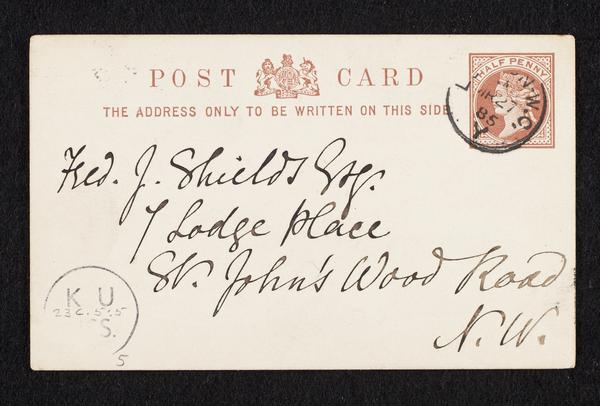 POST CARD
THE ADDRESS ONLY TO BE WRITTEN ON THIS SIDE
HALF PENNY
W.C.
27
85
Fred. J. Shields Esq.
7 Lodge Place
St. John's Wood Road
N.W.
K U
23C.5:5
S.
5